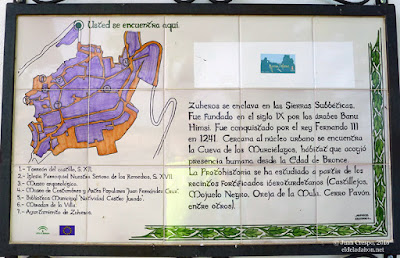 Usted se encuentra aquí
Zuheros se enclava en las Sierras Subbéticas.
Fue fundado en el siglo IX por los árabes Banu
Himsi. Fue conquistado por el rey Fernando III
en 1241. Cercana al núcleo urbano se encuentra
la Cueva de los Murciélagos, hábitat que acogió
presencia humana desde la Edad de Bronce.
La Protohistoria se ha estudiado a partir de los
recintos fortificados iberoturdetanos (Castillejo,
Mojuelo Negro, Oreja de la Mula, Cerro Pavón
entre otros).
1.- Torreón del castillo, S. XII.
2.- Iglesia Parroquial Nuestra Señora de los Remedios, S. XVII.
3.- Museo arqueológico.
4.- Museo de Costumbres y Artes Populares "Juan Fernández Cruz".
5.- Biblioteca Municipal "Natividad Castro Jurado".
6.- Mirador de la Villa
7.- Ayuntamiento de Zuheros.
© Juan Crespo, 2016
eldeladatson.net